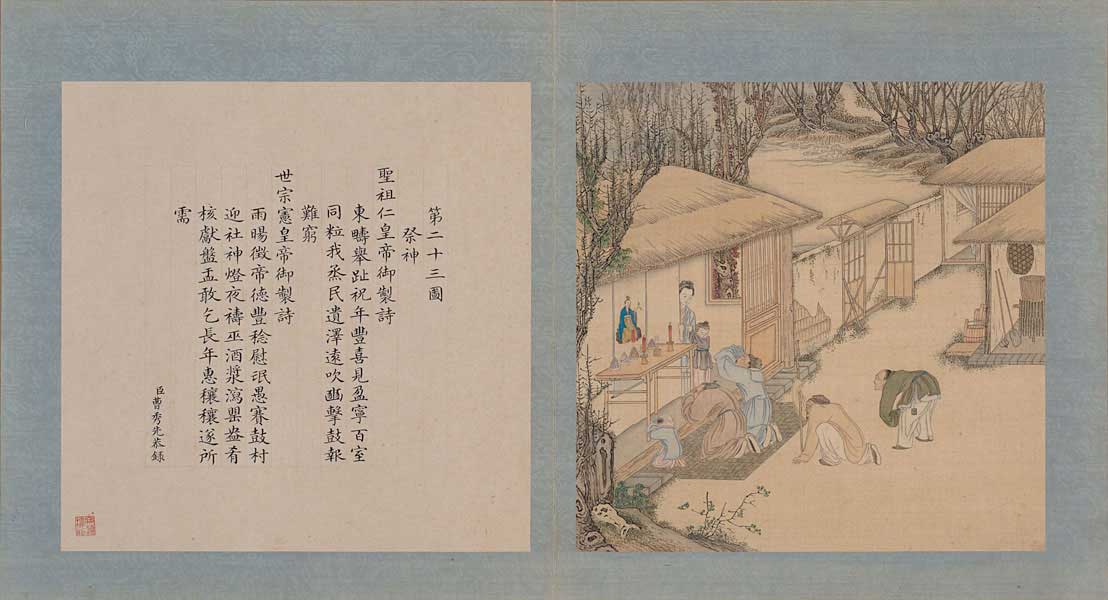 第二十三圖
祭神
聖祖仁皇帝御製詩
東疇舉趾祝年豐喜見盈寧百室
同粒我烝民遺澤遠吹豳擊鼓報
難窮
世宗憲皇帝御製詩
雨暘徵帝德豐稔慰氓愚賽鼓村
迎社神燈夜禱巫酒漿瀉罌盎肴
核獻盤盂敢乞長年惠穰穰遂所
需
臣曹秀先恭錄